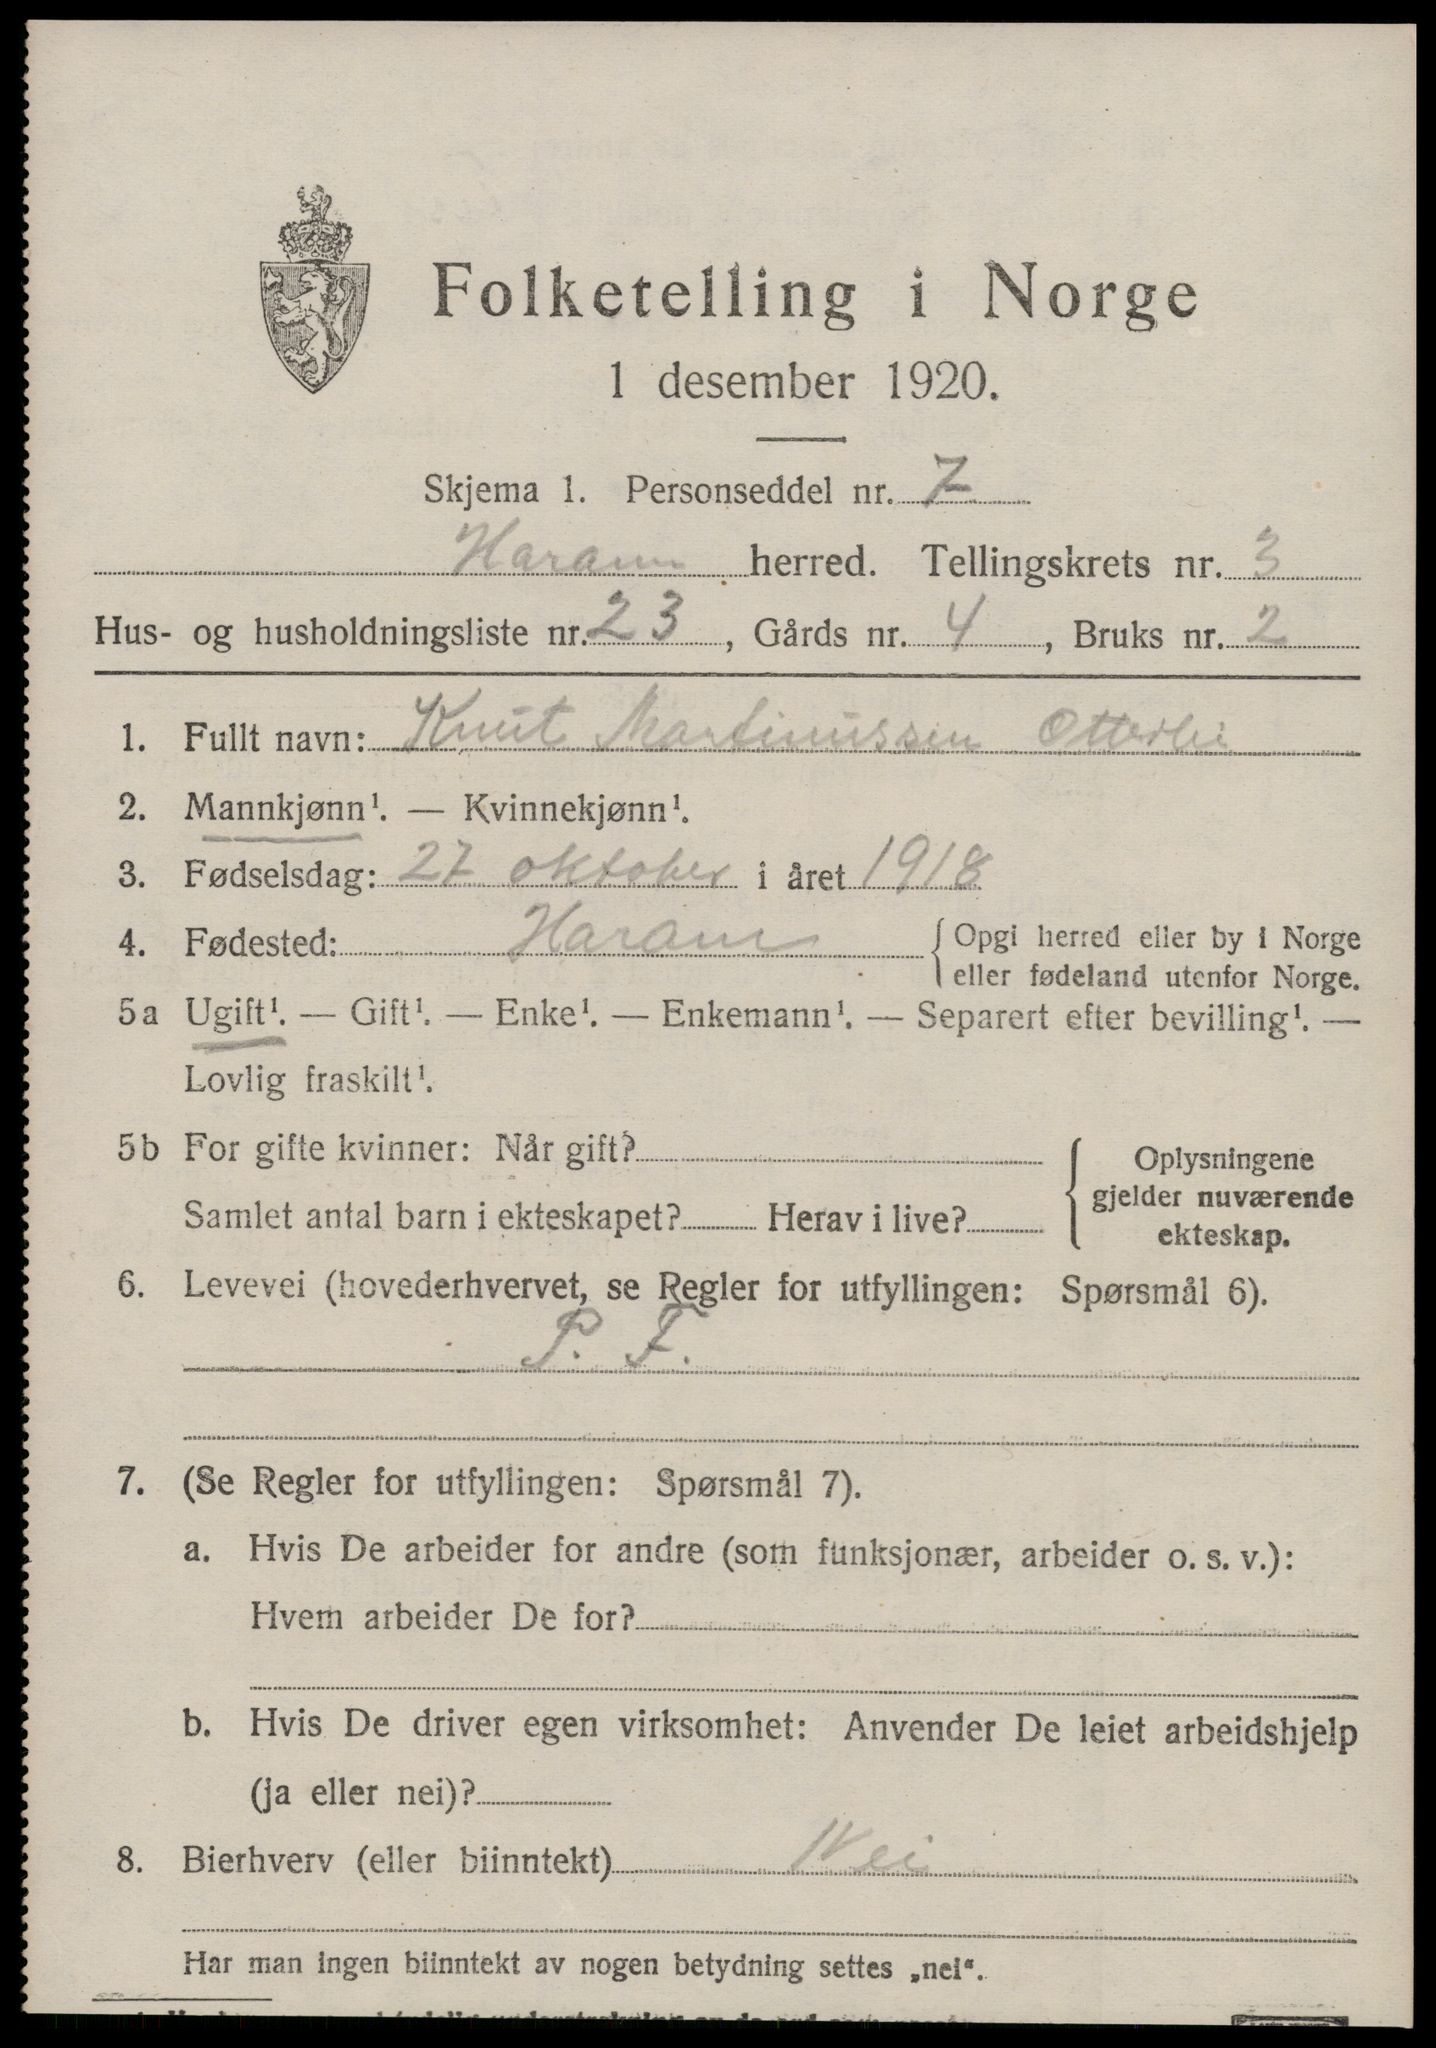 Folketelling i Norge
1 desember 1920.
Skjema 1. Personseddel nr. 7
Haram herred. Tellingskrets nr. 3
Hus- og husholdningsliste nr. 23, Gårds nr. 4, Bruks nr. 2
1. Fullt navn: Knut Martinussen Otterlei
2. Mannkjønn¹. — Kvinnekjønn¹.
3. Fødselsdag: 27 oktober i året 1918
4. Fødested: Haram { Opgi herred eller by i Norge
eller fødeland utenfor Norge.
5a Ugift¹. — Gift¹. — Enke¹. — Enkemann¹. — Separert efter bevilling¹. —
Lovlig fraskilt¹.
5b For gifte kvinner: Når gift?
Samlet antal barn i ekteskapet? Herav i live?
{ Oplysningene
gjelder nuværende
ekteskap.
6. Levevei (hovederhvervet, se Regler for utfyllingen: Spørsmål 6).
P. F.
7. (Se Regler for utfyllingen: Spørsmål 7).
a. Hvis De arbeider for andre (som funksjonær, arbeider o. s. v.):
Hvem arbeider De for?
b. Hvis De driver egen virksomhet: Anvender De leiet arbeidshjelp
(ja eller nei)?
8. Bierhverv (eller biinntekt) Nei
Har man ingen biinntekt av nogen betydning settes „nei“.